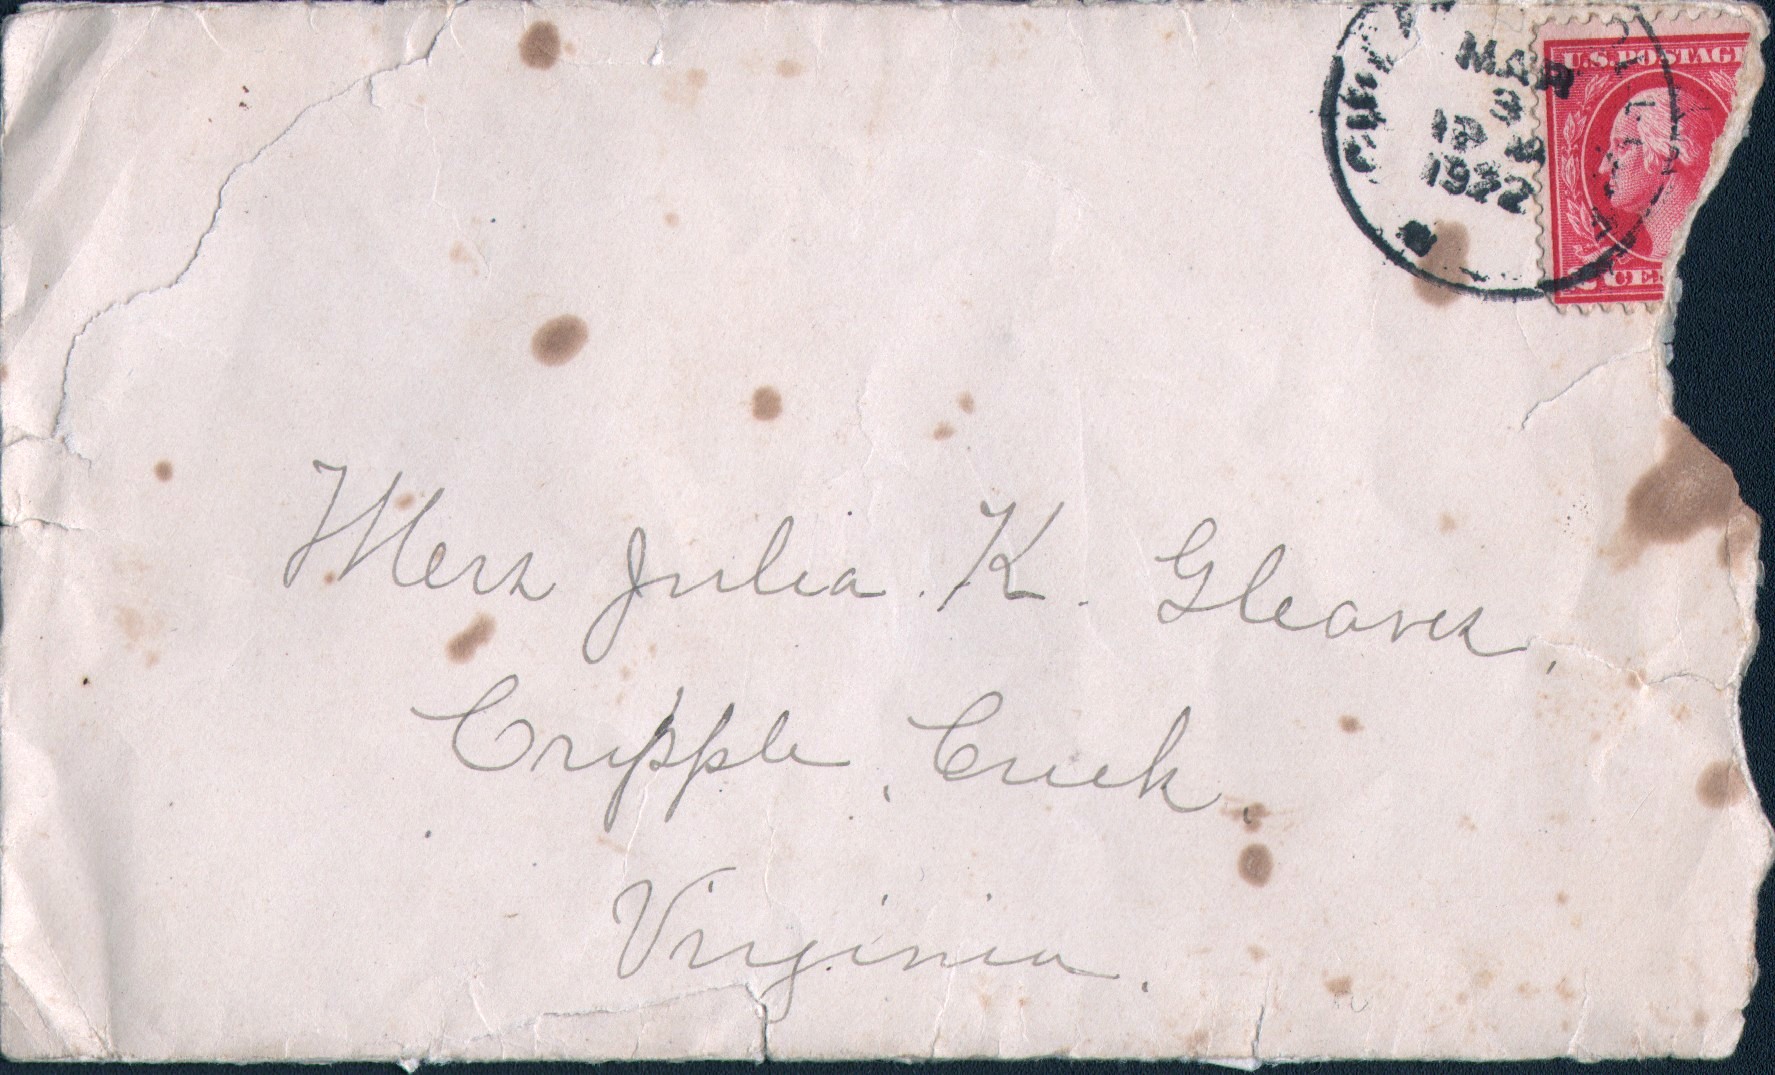 MAR
3
1922
U.S. POSTAGE
2 CE
Mers Julia K. Gleaves,
Cripple, Creek,
Virginia.